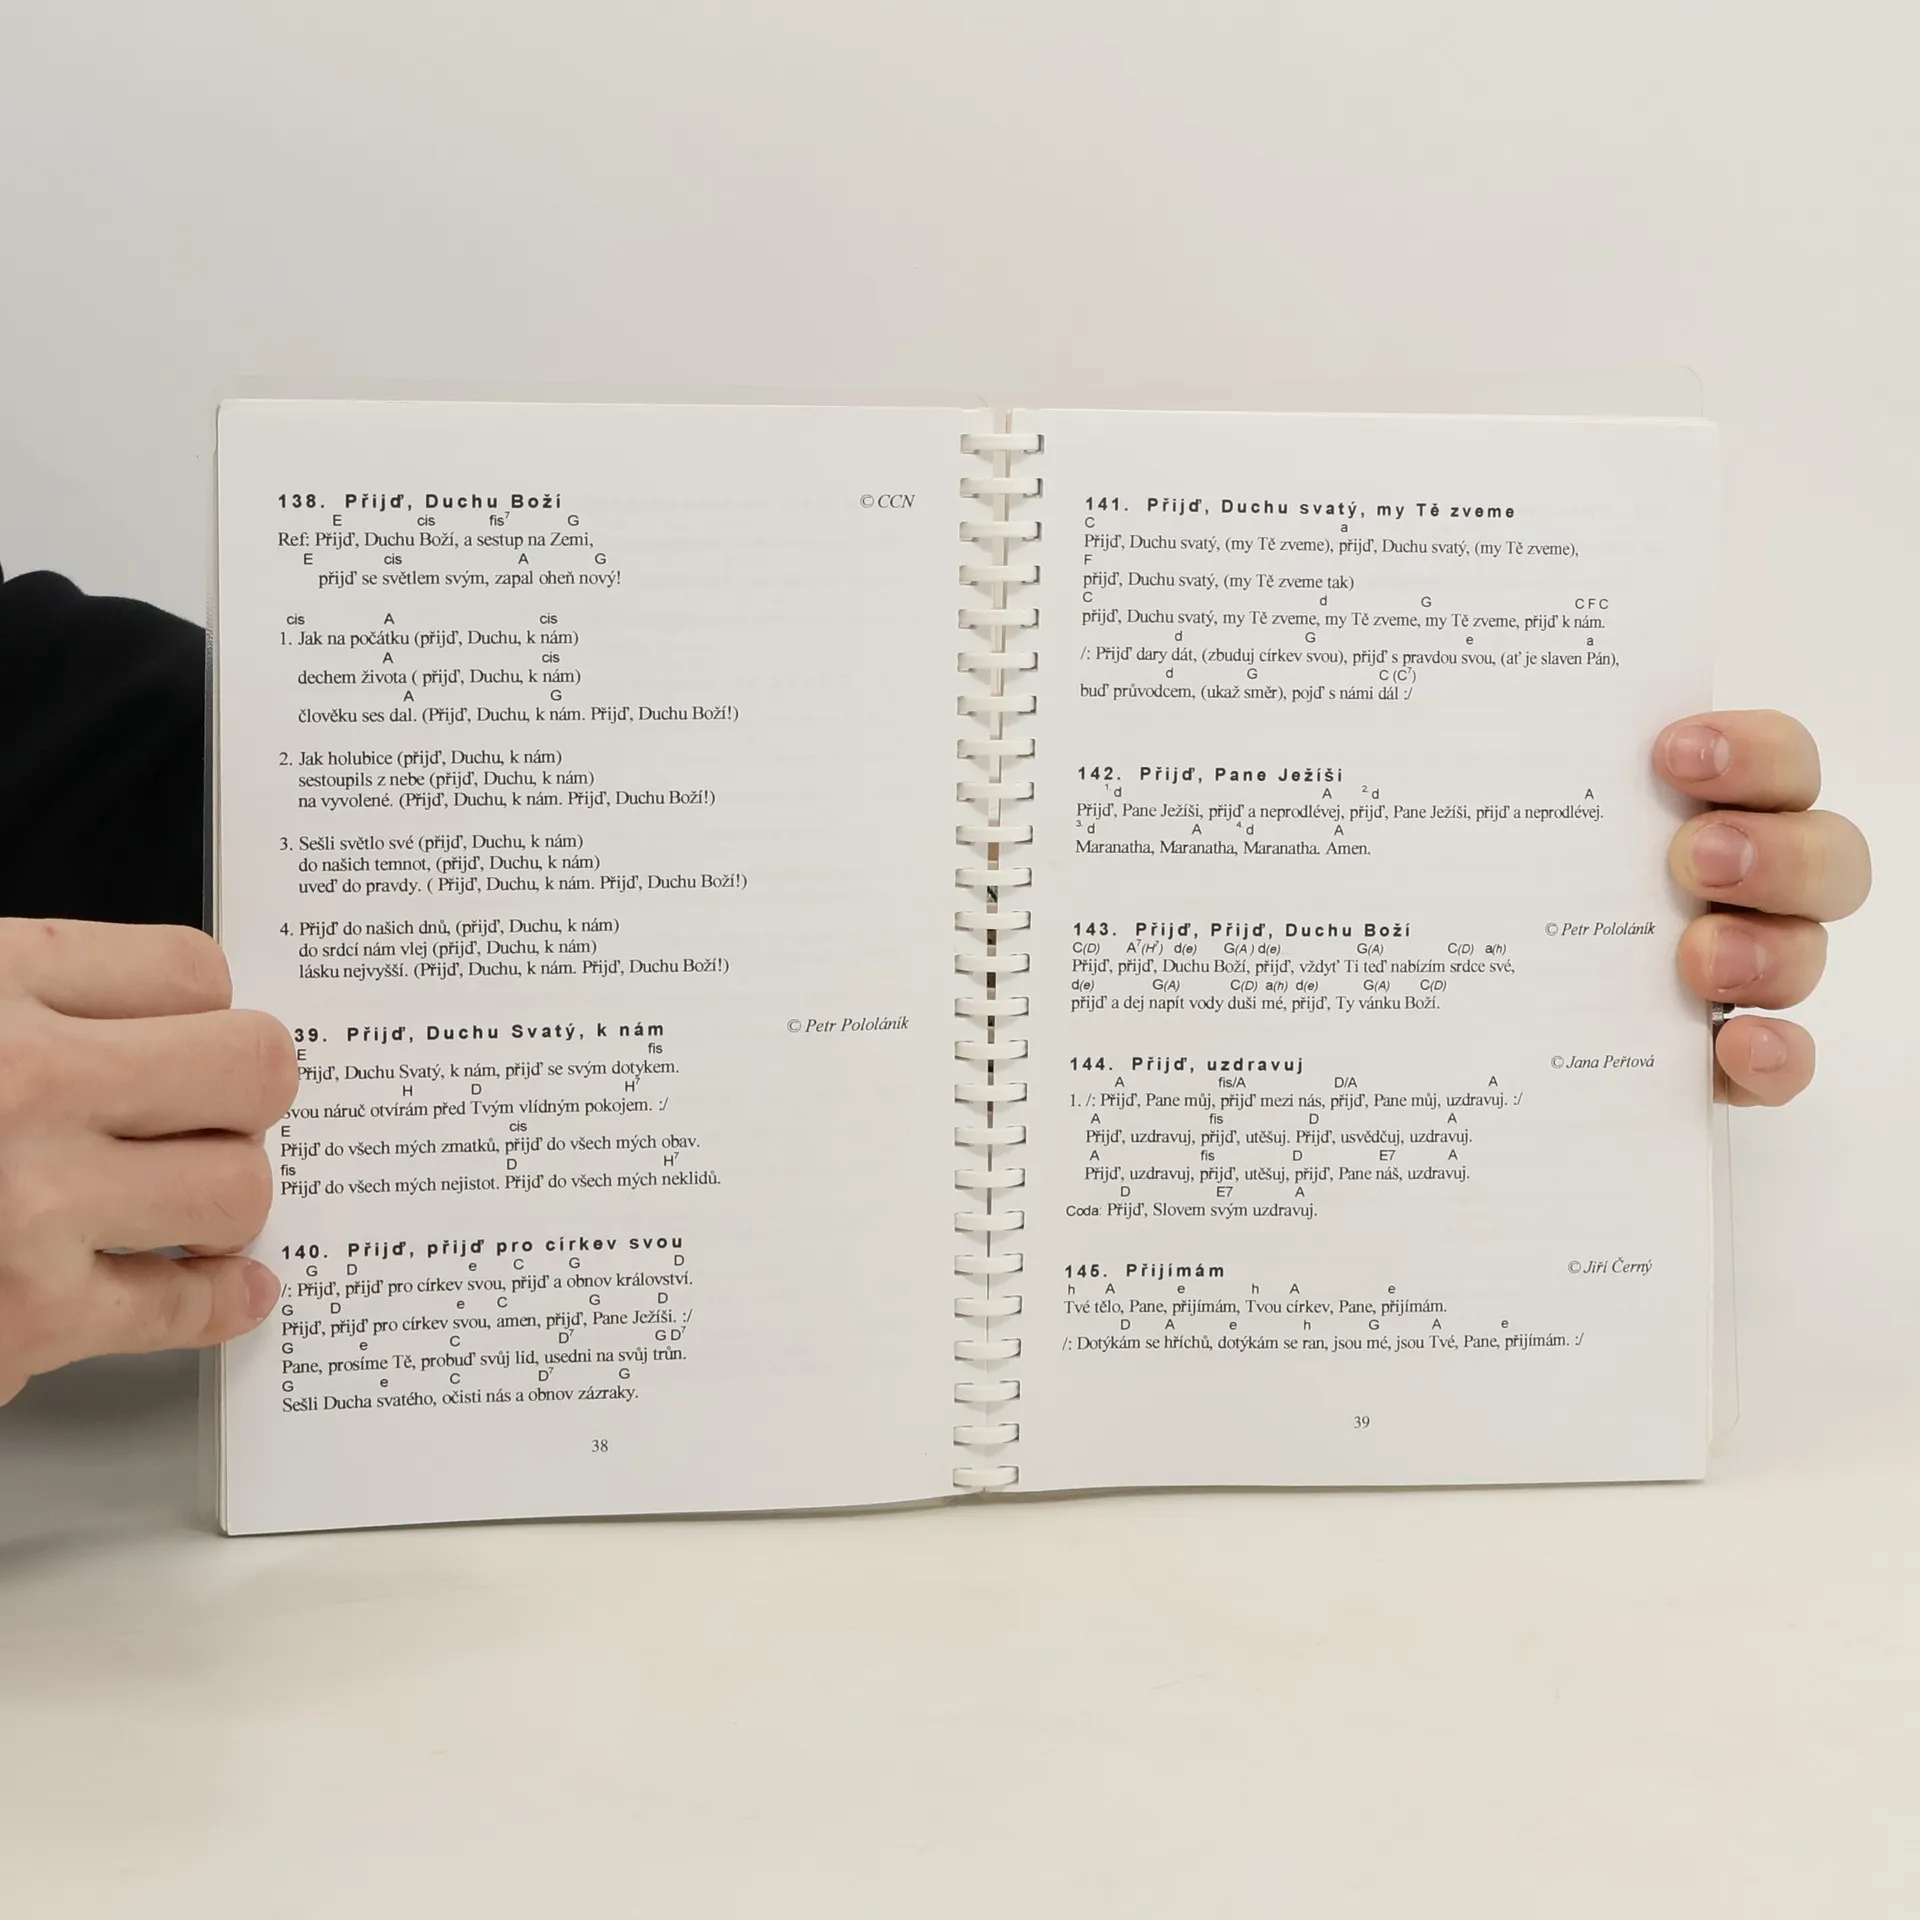 138. Přijď, Duchu Boží © CCN
E cis fis7 G
Ref: Přijď, Duchu Boží, a sestup na Zemi,
E cis A G
přijď se světlem svým, zapal oheň nový!
cis A cis
1. Jak na počátku (přijď, Duchu, k nám)
A cis
dechem života ( přijď, Duchu, k nám)
A G
člověku ses dal. (Přijď, Duchu, k nám. Přijď, Duchu Boží!)
2. Jak holubice (přijď, Duchu, k nám)
sestoupils z nebe (přijď, Duchu, k nám)
na vyvolené. (Přijď, Duchu, k nám. Přijď, Duchu Boží!)
3. Sešli světlo své (přijď, Duchu, k nám)
do našich temnot, (přijď, Duchu, k nám)
uveď do pravdy. ( Přijď, Duchu, k nám. Přijď, Duchu Boží!)
4. Přijď do našich dnů, (přijď, Duchu, k nám)
do srdcí nám vlej (přijď, Duchu, k nám)
lásku nejvyšší. (Přijď, Duchu, k nám. Přijď, Duchu Boží!)
39. Přijď, Duchu Svatý, k nám © Petr Pololáník
E fis
Přijď, Duchu Svatý, k nám, přijď se svým dotykem.
H D H7
Svou náruč otvírám před Tvým vlídným pokojem. :/
E cis
Přijď do všech mých zmatků, přijď do všech mých obav.
fis D H7
Přijď do všech mých nejistot. Přijď do všech mých neklidů.
140. Přijď, přijď pro církev svou
G D e C G D
/: Přijď, přijď pro církev svou, přijď a obnov království.
G D e C G D
Přijď, přijď pro církev svou, amen, přijď, Pane Ježíši. :/
G e C D7 G D7
Pane, prosíme Tě, probuď svůj lid, usedni na svůj trůn.
G e C D7 G
Sešli Ducha svatého, očisti nás a obnov zázraky.
38
141. Přijď, Duchu svatý, my Tě zveme
C a
Přijď, Duchu svatý, (my Tě zveme), přijď, Duchu svatý, (my Tě zveme),
F
přijď, Duchu svatý, (my Tě zveme tak)
C d G C F C
přijď, Duchu svatý, my Tě zveme, my Tě zveme, my Tě zveme, přijď k nám.
d G e a
/: Přijď dary dát, (zbuduj církev svou), přijď s pravdou svou, (ať je slaven Pán),
d G C (C7)
buď průvodcem, (ukaž směr), pojď s námi dál :/
142. Přijď, Pane Ježíši
1. d A 2. d A
Přijď, Pane Ježíši, přijď a neprodlévej, přijď, Pane Ježíši, přijď a neprodlévej.
3. d A 4. d A
Maranatha, Maranatha, Maranatha. Amen.
143. Přijď, Přijď, Duchu Boží © Petr Pololáník
C(D) A7(H7) d(e) G(A) d(e) G(A) C(D) a(h)
Přijď, přijď, Duchu Boží, přijď, vždyť Ti teď nabízím srdce své,
d(e) G(A) C(D) a(h) d(e) G(A) C(D)
přijď a dej napít vody duši mé, přijď, Ty vánku Boží.
144. Přijď, uzdravuj © Jana Peřtová
A fis/A D/A A
1. /: Přijď, Pane můj, přijď mezi nás, přijď, Pane můj, uzdravuj. :/
A fis D A
Přijď, uzdravuj, přijď, utěšuj. Přijď, usvědčuj, uzdravuj.
A fis D E7 A
Přijď, uzdravuj, přijď, utěšuj, přijď, Pane náš, uzdravuj.
D E7 A
Coda: Přijď, Slovem svým uzdravuj.
145. Přijímám © Jiří Černý
h A e h A e
Tvé tělo, Pane, přijímám, Tvou církev, Pane, přijímám.
D A e h G A e
/: Dotýkám se hříchů, dotýkám se ran, jsou mé, jsou Tvé, Pane, přijímám. :/
39